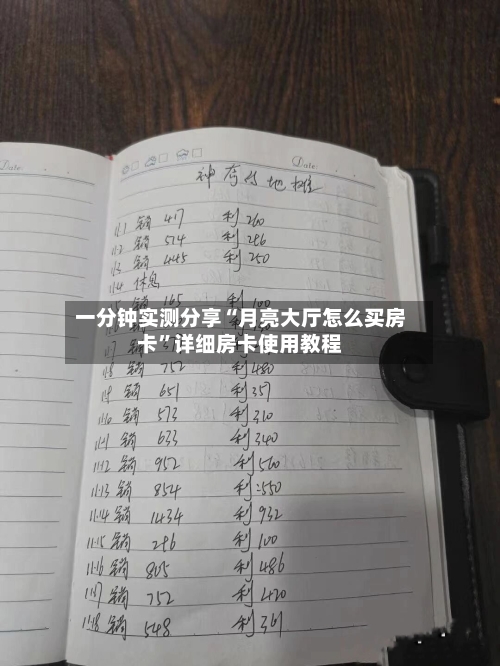 Date
Date
神奇的地摊
11.1 销 417 利 260
11.2 销 524 利 286
11.3 销 445 利 250
11.4 休息
165 利 100
一分钟实测分享“月亮大厅怎么买房
卡”详细房卡使用教程
11.8 销 752 利 480
11.9 销 651 利 357
11.10 销 573 利 310
11.11 销 633 利 340
11.12 销 952 利 560
11.13 销 854 利:550
11.14 销 1434 利 932
11.15 销 296 利 100
11.16 销 805 利 486
11.17 销 752 利 420
11.18 销 548 利 361